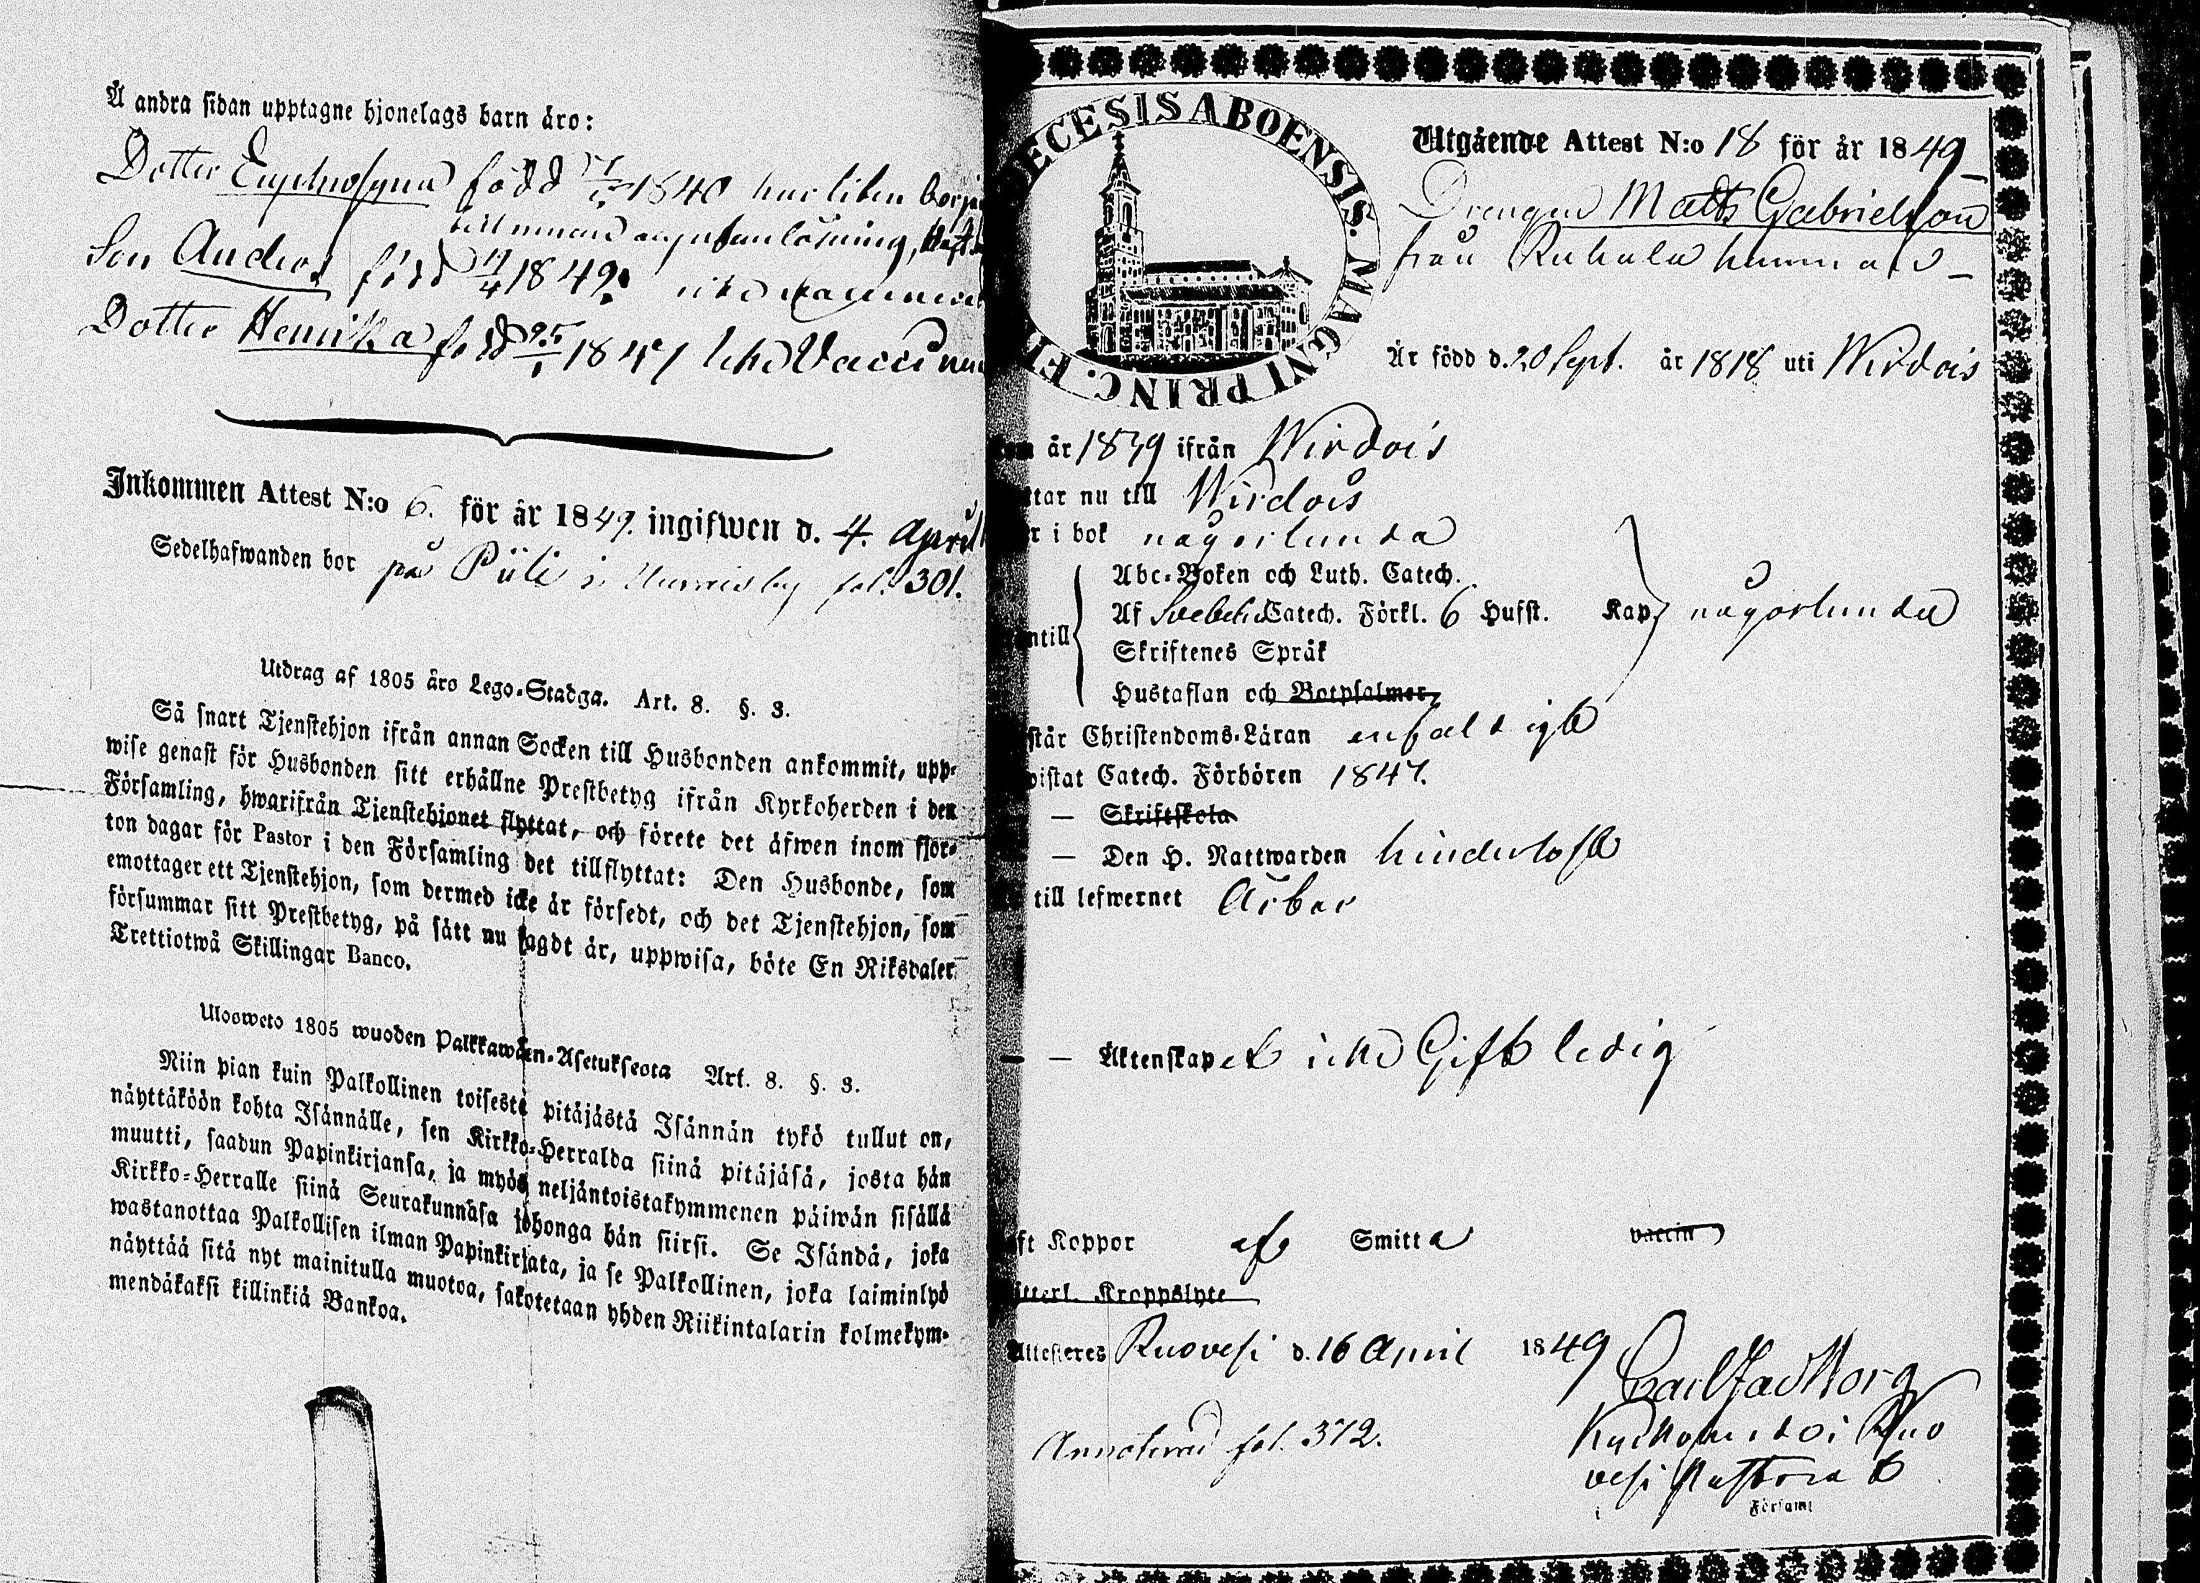 Å andra sidan upptagne hjonelags barn äro:
Dotter Euphrosyna född 1840 har liten börja
till innan
Son Anders född 11/4 1842. icke vaccinerad
Dotter Henrika född 25/1 1847 icke Vaccinn
Inkommen Attest N:o 6. för år 1849. ingifwen d. 4. April
Sedelhafwanden bor på Püli i fol. 301.
Utdrag af 1805 års Lego-Stadga. Art. 8. §. 3.
Så snart Tjenstehjon ifrån annan Socken till Husbonden ankommit, upp-
wise genast för Husbonden sitt erhållne Prestbetyg ifrån Kyrkoherden i den
Församling, hwarifrån Tjenstehjonet flyttat, och förete det äfwen inom fjor-
ton dagar för Pastor i den Församling det tillflyttat: Den Husbonde, som
emottager ett Tjenstehjon, som dermed icke är försedt, och det Tjenstehjon, som
försummar sitt Prestbetyg, på sätt nu sagdt är, uppwisa, böte En Riksdaler
Trettiotwå Skillingar Banco.
Uloswcto 1805 wuoden Palkkawäen-Asetuksesta Art. 8. §. 3.
Niin pian kuin Palkollinen toisesta pitäjästä Isännän tykö tullut on,
näyttäköön kohta Isännälle, sen Kirkko-Herralda siinä pitäjäsä, josta hän
muutti, saadun Papinkirjansa, ja myös neljäntoistakymmenen päiwän sisällä
Kirkko-Herralle siinä Seurakunnasa johonga hän siirsi. Se Isändä, joka
wastanottaa Palkollisen ilman Papinkirjata, ja se Palkollinen, joka laiminlyö
näyttää sitä nyt mainitulla muotoa, sakotetaan yhden Riikintalarin kolmekym-
mendäkaksi killinkiä Bankoa.
DIECESIS ABOENSIS. MAGNI PRINC. FI
Utgående Attest N:o 18 för år 1849
Drengen Matts Gabrielsson
från Ruhala hemman
Är född d. 20 Sept. år 1818 uti Wirdois
kom år 1839 ifrån Wirdois
ttar nu till Wirdois
r i bok någorlunda
Abc-Boken och Luth. Catech.
Af Svebelii Catech. Förkl. 6 Hufst. Kap. någorlunda
ntill
Skriftenes Språk
Hustaflan och Botpsalmer
står Christendoms-Läran enfaldigt
wistat Catech. Förhören 1847.
— Skriftskola
— Den H. Nattwarden hinderlöst
till lefwernet Ärbar
— — Äktenskapet icke Gift ledig
ft Koppor af Smitta vaccin
tterl. Kroppslyte
Attesteres Ruovesi d. 16 April 1849
Carl
Kyrkoherde i Ruo
vesi Pastorat
Församl
Annoterad fol. 372.